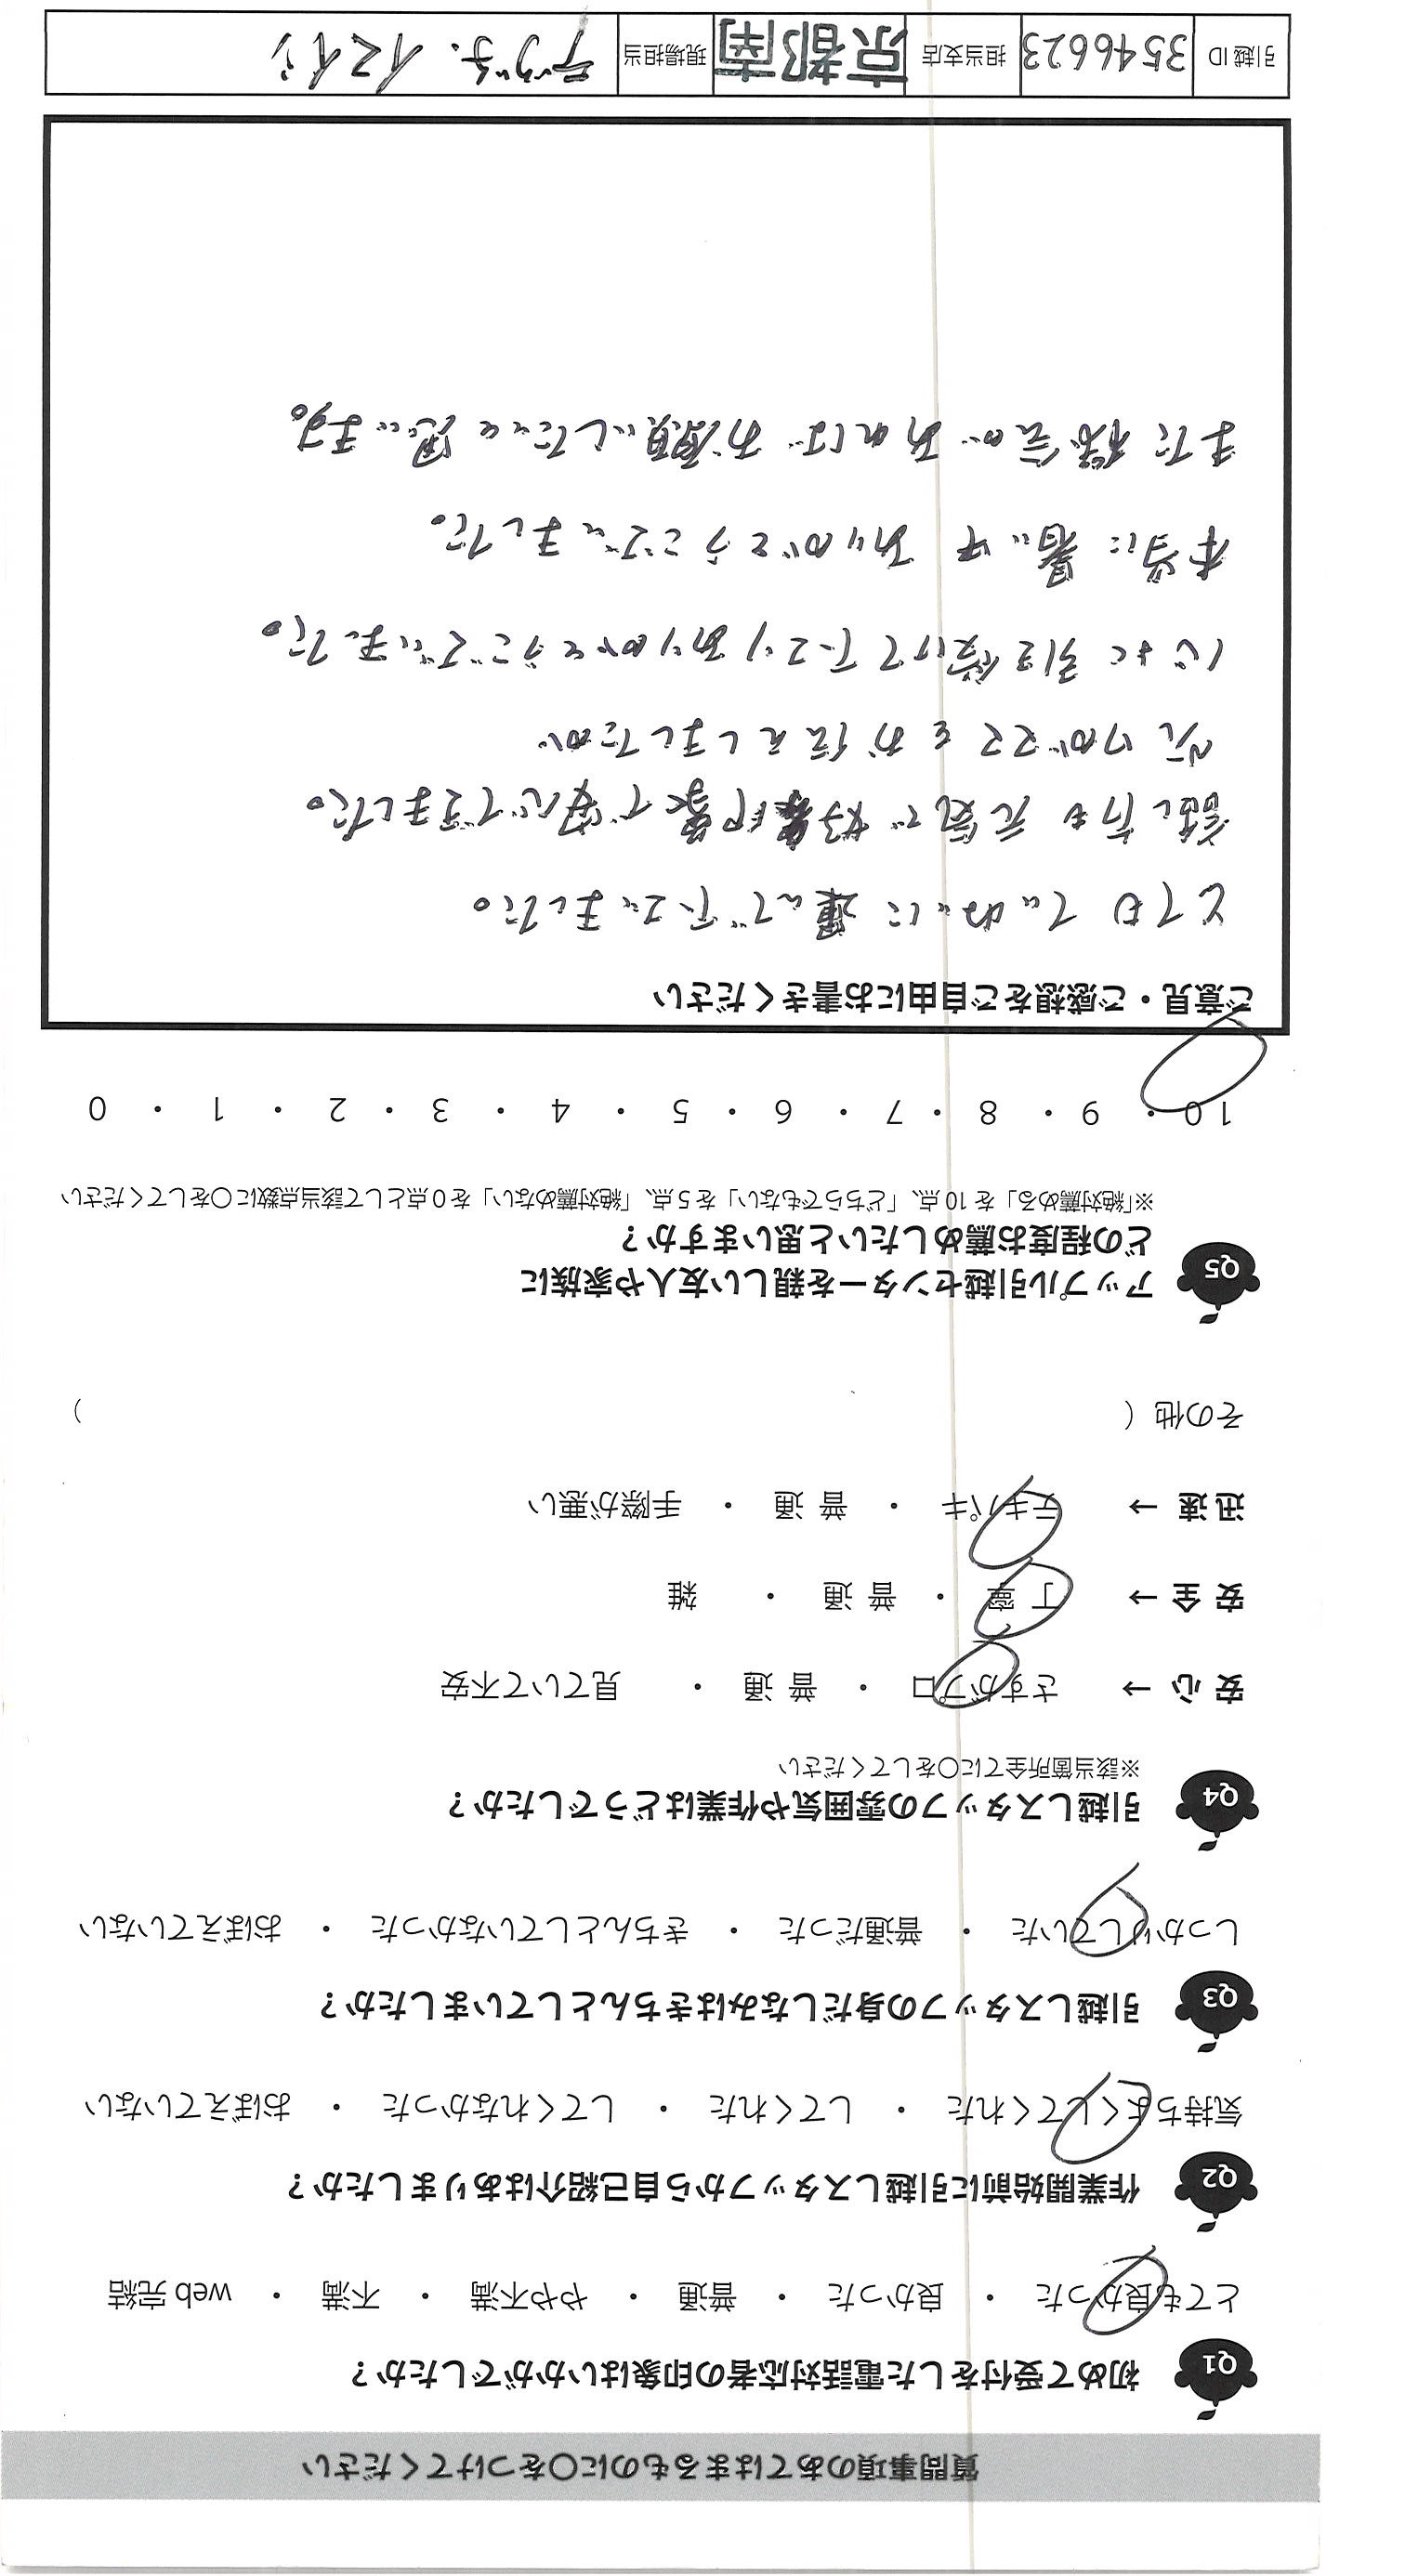 質問事項のあてはまるものに○をつけてください
Q1 初めて受付をした電話対応者の印象はいかがでしたか？
とても良かった ・ 良かった ・ 普通 ・ やや不満 ・ 不満 ・ web 完結
Q2 作業開始前に引越しスタッフから自己紹介はありましたか？
気持ちよくしてくれた ・ してくれた ・ してくれなかった ・ おぼえていない
Q3 引越しスタッフの身だしなみはきちんとしていましたか？
しっかりしていた ・ 普通だった ・ きちんとしていなかった ・ おぼえていない
Q4 引越しスタッフの雰囲気や作業はどうでしたか？
※該当箇所全てに○をしてください
安 心 → さすがプロ ・ 普 通 ・ 見ていて不安
安 全 → 丁 寧 ・ 普 通 ・ 雑
迅 速 → テキパキ ・ 普 通 ・ 手際が悪い
その他（ ）
Q5 アップル引越センターを親しい友人や家族に
どの程度お薦めしたいと思いますか？
※「絶対薦める」を 10 点、「どちらでもない」を 5 点、「絶対薦めない」を 0 点として該当点数に○をしてください
10 ・ 9 ・ 8 ・ 7 ・ 6 ・ 5 ・ 4 ・ 3 ・ 2 ・ 1 ・ 0
ご意見・ご感想をご自由にお書きください
とても ていねいに 運んで下さいました。
話し方も 元気で 好印象で安心できました。
ワガママを お伝えしましたが
心よく 引き受けて下さり ありがとうございました。
本当に 暑い中 ありがとうございました。
また 機会が あれば お願いしたいと 思います。
引越 ID 3546623 担当支店 京都南 現場担当 デグチ、イマイシ